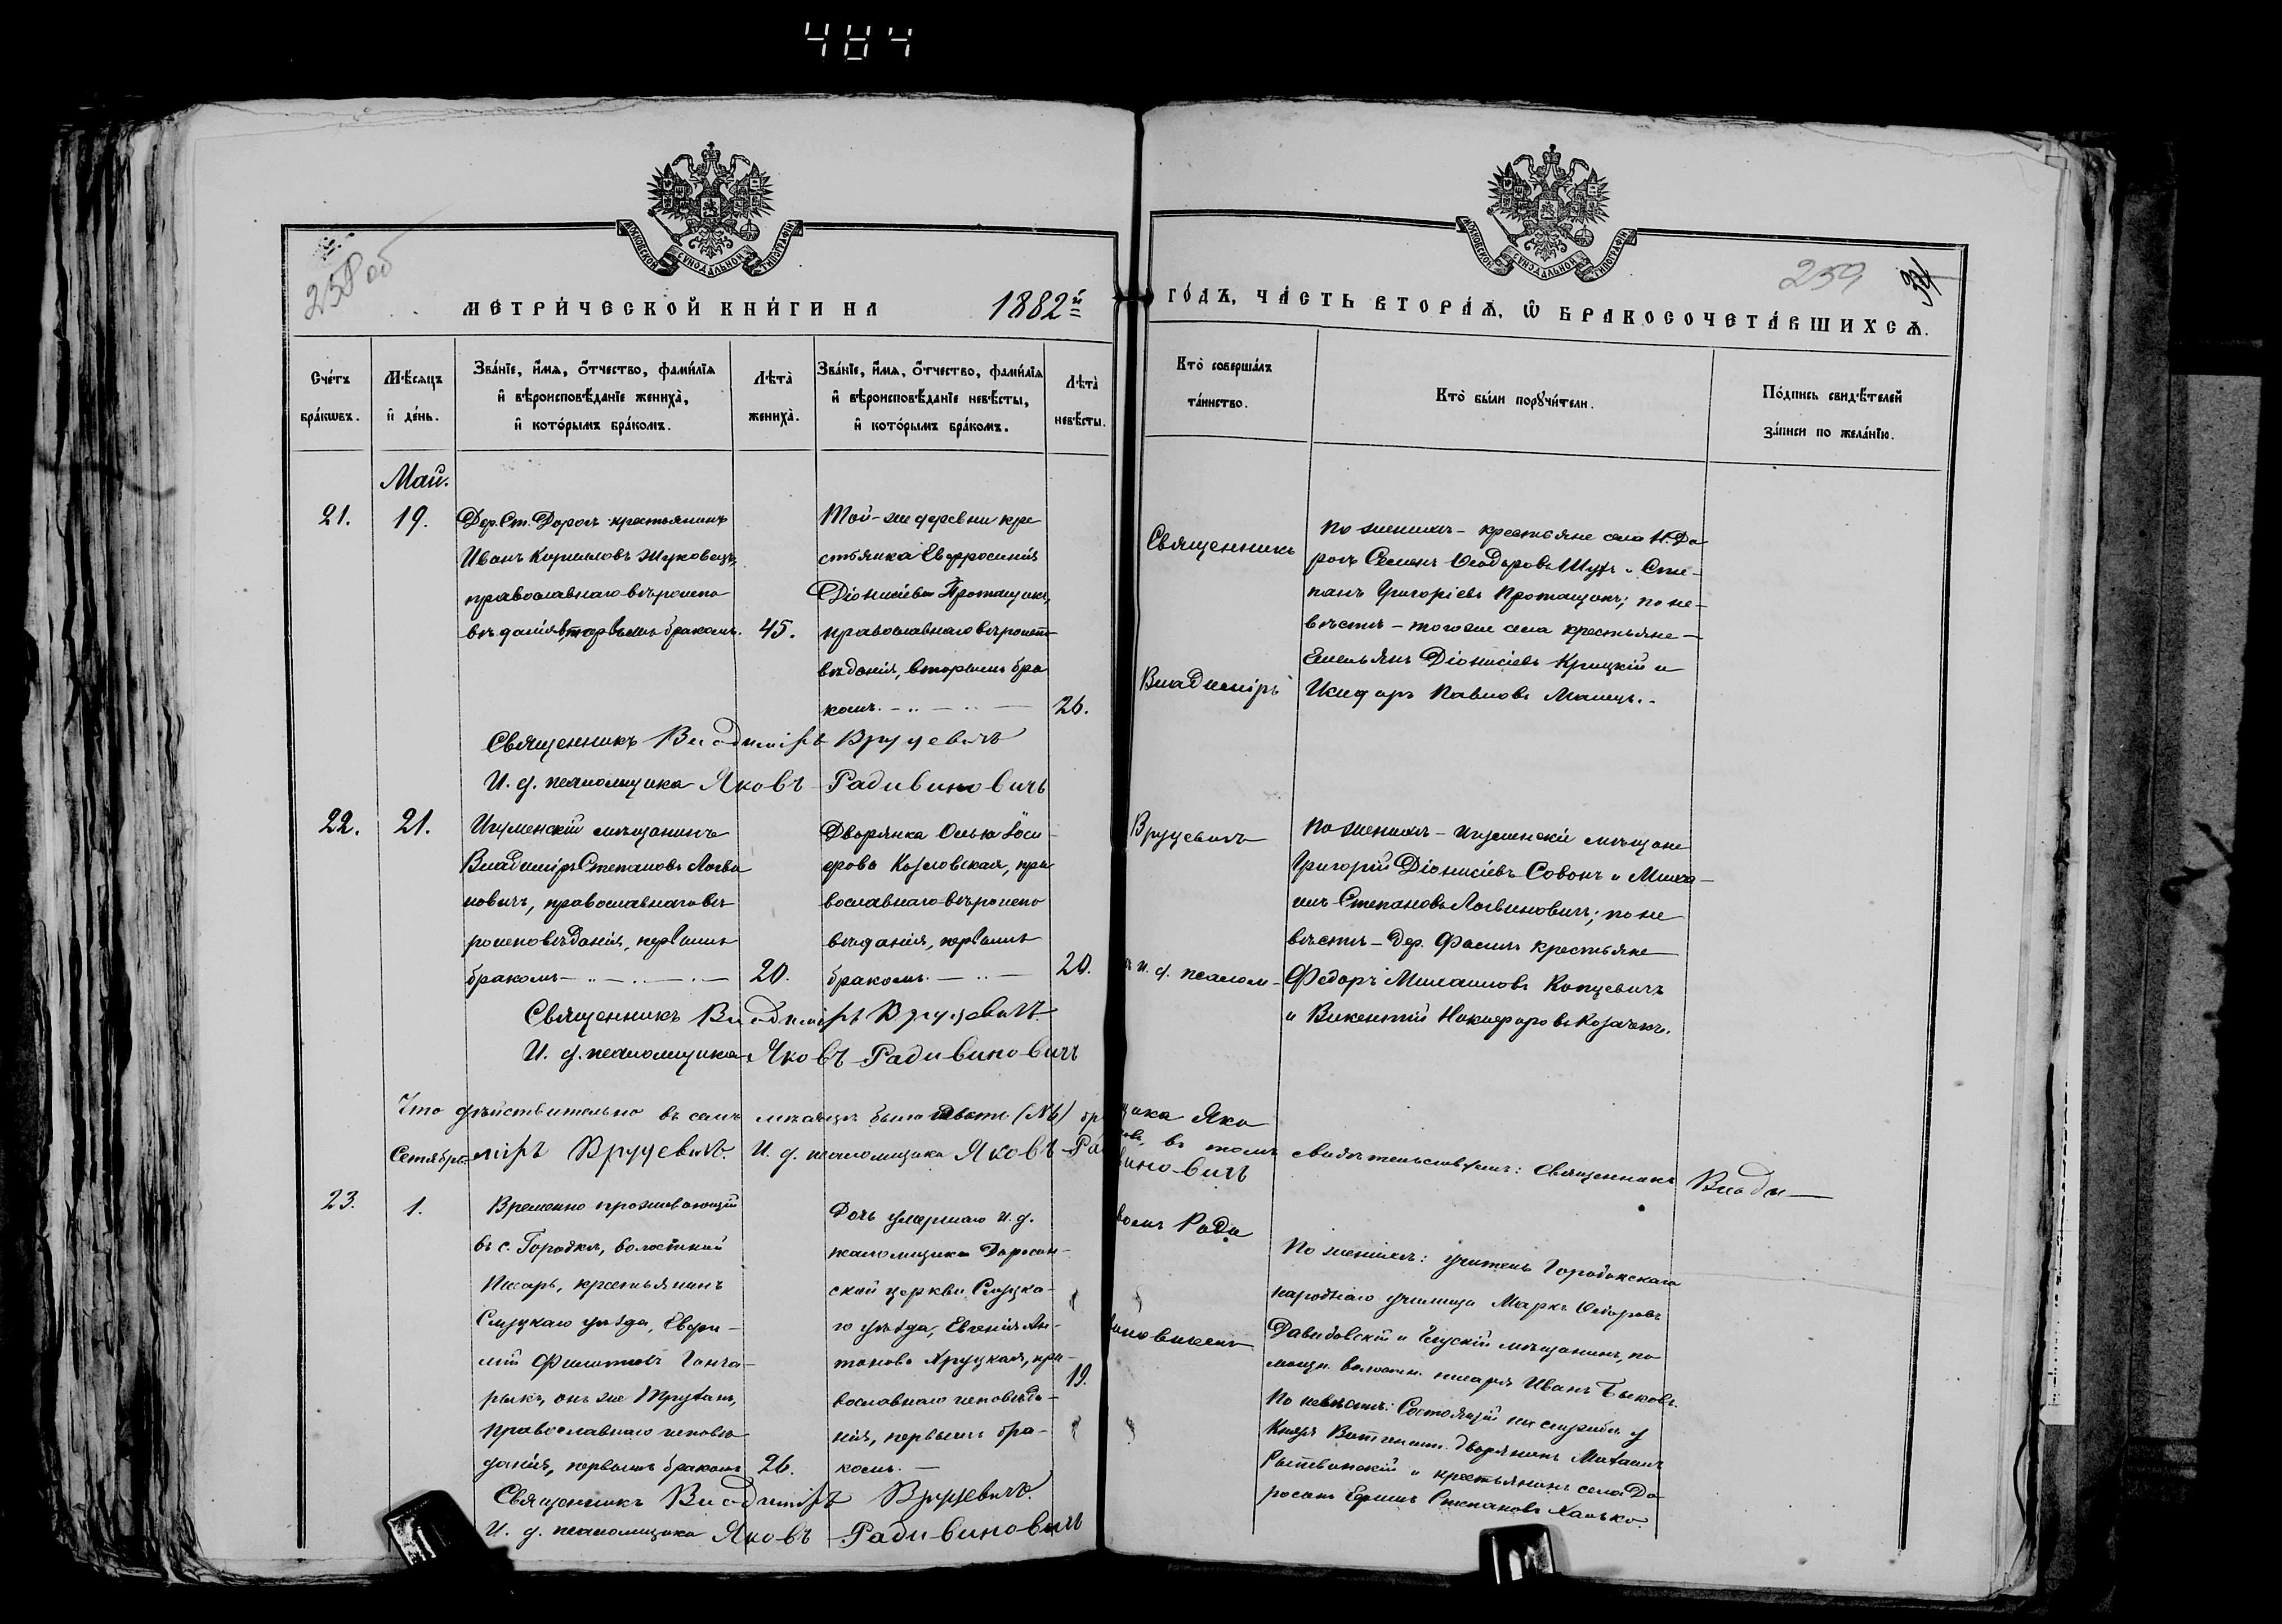 484
258 об
259
34
МОСКОВСКОЙ СѴНОДАЛЬНОЙ ТИПОГРАФІИ
МОСКОВСКОЙ СѴНОДАЛЬНОЙ ТИПОГРАФІИ
МЕТРИ́ЧЕСКОЙ КНИ́ГИ НА 1882й
ГО́ДЪ, ЧА́СТЬ ВТОРА́Ѧ, Ѽ БРАКОСОЧЕТА́ВШИХСѦ.
Сче́тъ
бра́кѡвъ.
Мѣ́сяцъ
и҆ де́нь.
Зва́нїе, и҆́мѧ, ѻ҆́тчество, фами́лїѧ
и҆ вѣроисповѣ́данїе жениха̀,
и҆ кото́рымъ бра́комъ.
Лѣта̀
жениха̀.
Зва́нїе, и҆́мѧ, ѻ҆́тчество, фами́лїѧ
и҆ вѣроисповѣ́данїе невѣ́сты,
и҆ кото́рымъ бра́комъ.
Лѣта̀
невѣ́сты.
Кто̀ соверша́лъ
та́инство.
Кто̀ бы́ли порꙋчи́тели.
По́дпись свидѣ́телей
за́писи по жела́нїю.
Май.
21.
19.
Дер. Ст. Дорогъ крестьянинъ
Иванъ Корниловъ Жуковецъ,
православнаго вѣроиспо
вѣданія, вторымъ бракомъ.
45.
Той-же деревни кре
стьянка Евфросинія
Діонисіева Протащукъ,
православнаго вѣроиспо
вѣданія, вторымъ бра
комъ.
26.
Священникъ
Владиміръ
По женихѣ - крестьяне села Н. До
рогъ Семенъ Ѳеодоровъ Шукъ и Сте-
панъ Григоріевъ Протащукъ; по не-
вѣстѣ - того же села крестьяне
Емельянъ Діонисіевъ Крицкій и
Никифоръ Павловъ Малецъ.
Священникъ Владиміръ Вруцевичъ
И. д. псаломщика Яковъ Радивиновичъ
22.
21.
Игуменскій мѣщанинъ
Владиміръ Степановъ Логви
новичъ, православнаго вѣ
роисповѣданія, первымъ
бракомъ
20.
Дворянка Ольга Іоси
фова Козловская, пра
вославнаго вѣроиспо
вѣданія, первымъ
бракомъ.
20.
Вруцевичъ
и. д. псалом-
По женихѣ - Игуменскіе мѣщане
Григорій Діонисіевъ Совонъ и Миха-
илъ Степановъ Логвиновичъ; по не
вѣстѣ - дер. Фаличъ крестьяне
Ѳедоръ Михаиловъ Копцевичъ
и Викентій Никифоровъ Козаченъ.
Священникъ Владиміръ Вруцевичъ.
И. д. псаломщика Яковъ Радивиновичъ
Что дѣйствительно въ семъ мѣсяцѣ было
щика Яко
въ томъ свидѣтельствуемъ: Священникъ Влади-
міръ Вруцевичъ. И. д. псаломщика Яковъ Ра
виновичъ
Сентябрь
23.
1.
Временно проживающій
въ с. Городкѣ, волостной
Писарь, крестьянинъ
Слуцкаго уѣзда, Евфи-
мій Филиповъ Гонча-
рыкъ, онъ же Труханъ,
православнаго исповѣ
данія, первымъ бракомъ
26.
Дочь умершаго и. д.
псаломщика Доросин-
ской церкви Слуцка-
го уѣзда, Евгенія Ан-
тонова Хруцкая, пра-
вославнаго исповѣда-
нія, первымъ бра-
комъ.
19.
вомъ Ради
виновичемъ
По женихѣ: учитель Городокскаго
народнаго училища Маркъ Ѳеодоровъ
Давидовскій и Глускій мѣщанинъ, по
мощн. волостн. писаря Иванъ Быковъ.
По невѣстѣ: Состоящій на службѣ у
Князя Витгеншт. дворянинъ Михаилъ
и крестьянинъ села До
росинъ Ефимъ Степановъ Халько.
Священникъ Владиміръ Вруцевичъ.
И. д. псаломщика Яковъ Радивиновичъ